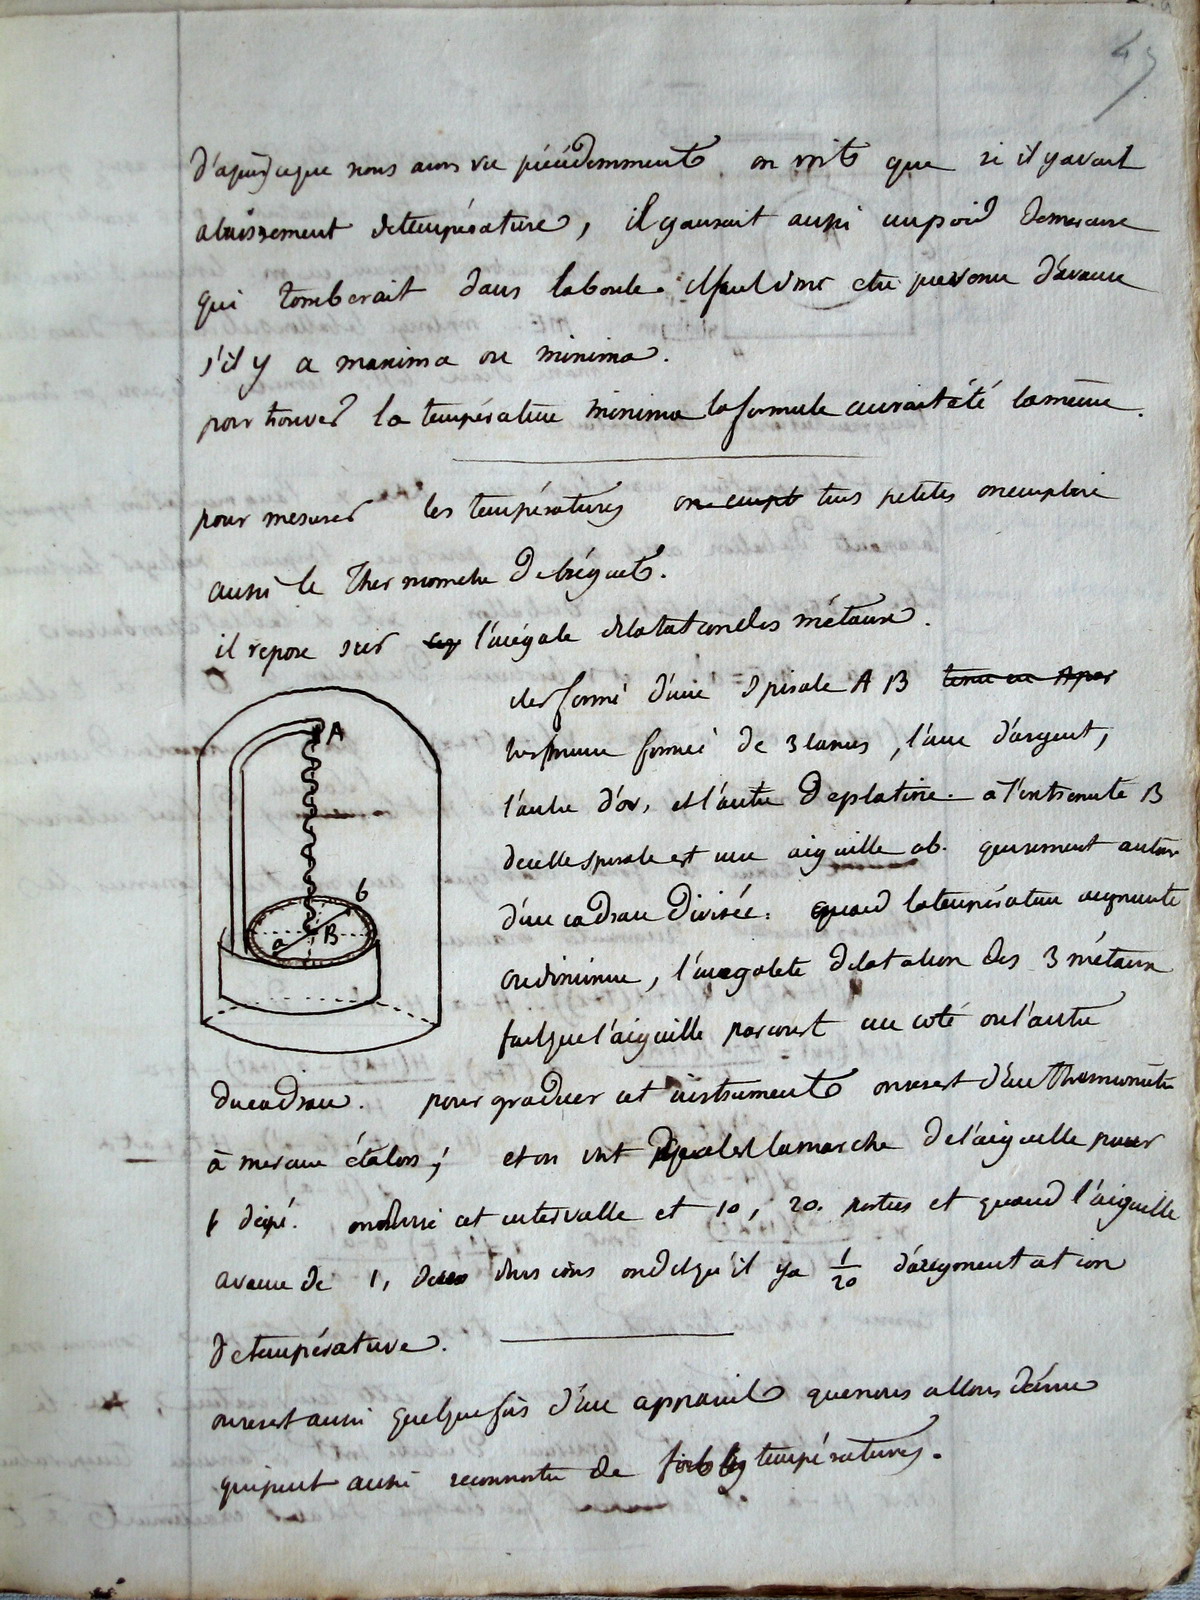 45
d'après ceque nous avons vu précédemment on voit que si il y avait
abaissement de température, il y aurait aussi un poid de mercure
qui tomberait dans la boule. il faut donc etre prevenu d'avance
s'il y a maxima ou minima.
pour trouver la température minima la formule aurait été la même.
pour mesurer les températures on empl très petites on emploie
aussi le Thermometre de bréguet.
il repose sur l'inégale dilatation des métaux.
il est formé d'une spirale A B tenu en A par
formée de 3 lames, l'une d'argent,
l'autre d'or, et l'autre de platine. a l'extremité B
de cette spirale est une aiguille ab. qui se meut autour
d'un cadran divisée. quand la température augmente
ou diminue, l'inegale dilatation des 3 métaux
fait que l'aiguille parcourt un coté ou l'autre
A
b
a
B
du cadran. pour graduer cet instrument on se sert d'un thermometre
à mercure étalon; et on voit quel est la marche de l'aiguille pour
1 degré. on divise cet intervalle et 10, 20. parties et quand l'aiguille
avance de 1, divisions on dit qu'il y a 1/20 d'augmentation
de température.
on se sert aussi quelquefois d'un appareil que nous allons décrire
qui peut aussi reconnaitre de faibles températures.